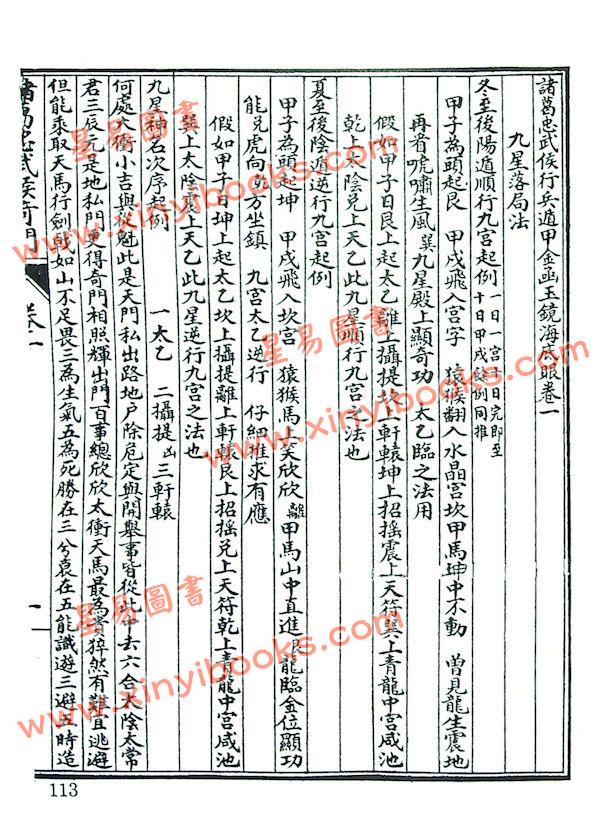 諸葛忠武侯行兵遁甲金函玉鏡海底眼卷一
九星落局法
冬至後陽遁順行九宮起例 一日一宮十日完即至十日甲戌疑例同推
甲子為頭起艮 甲戌飛入宮字 猿猴翻入水晶宮坎 甲馬坤中不動 曾見龍生震地
再看唬嘯生風巽 九星殿上顯奇功 太乙臨之法用
假如甲子日艮上起太乙離上攝提坎上軒轅坤上招搖震上天符巽上青龍中宮咸池
乾上太陰兌上天乙此九星順行九宮之法也
夏至後陰遁逆行九宮起例
甲子為頭起坤 甲戌飛入坎宮 猿猴馬上笑欣欣離 甲馬山中直進艮 龍臨金位顯功
能兌 虎向 方坐鎮 九宮太乙逆行 仔細推求有應
假如甲子日坤上起太乙坎上攝提離上軒轅艮上招搖兌上天符乾上青龍中宮咸池
巽上太陰震上天乙此九星逆行九宮之法也
九星神名次序起例 一太乙 二攝提凶 三軒轅
何處太衝小吉與從魁此是天門私出路地戶除危定與開舉事皆從此中去六合太陰太常
君三辰元是地私門更得奇門相照輝出門百事總欣欣太衝天馬最為貴猝然有難宜逃避
但能乘取天馬行劍戟如山不足畏三為生氣五為死勝在三兮衰在五能識遊三避五時造
諸葛忠武侯奇門 卷一
一
113
星易圖書
www.xinyibooks.com
星易圖書
www.xinyibooks.com
星易圖書
www.xinyibooks.com
星易圖書
www.xinyibooks.com